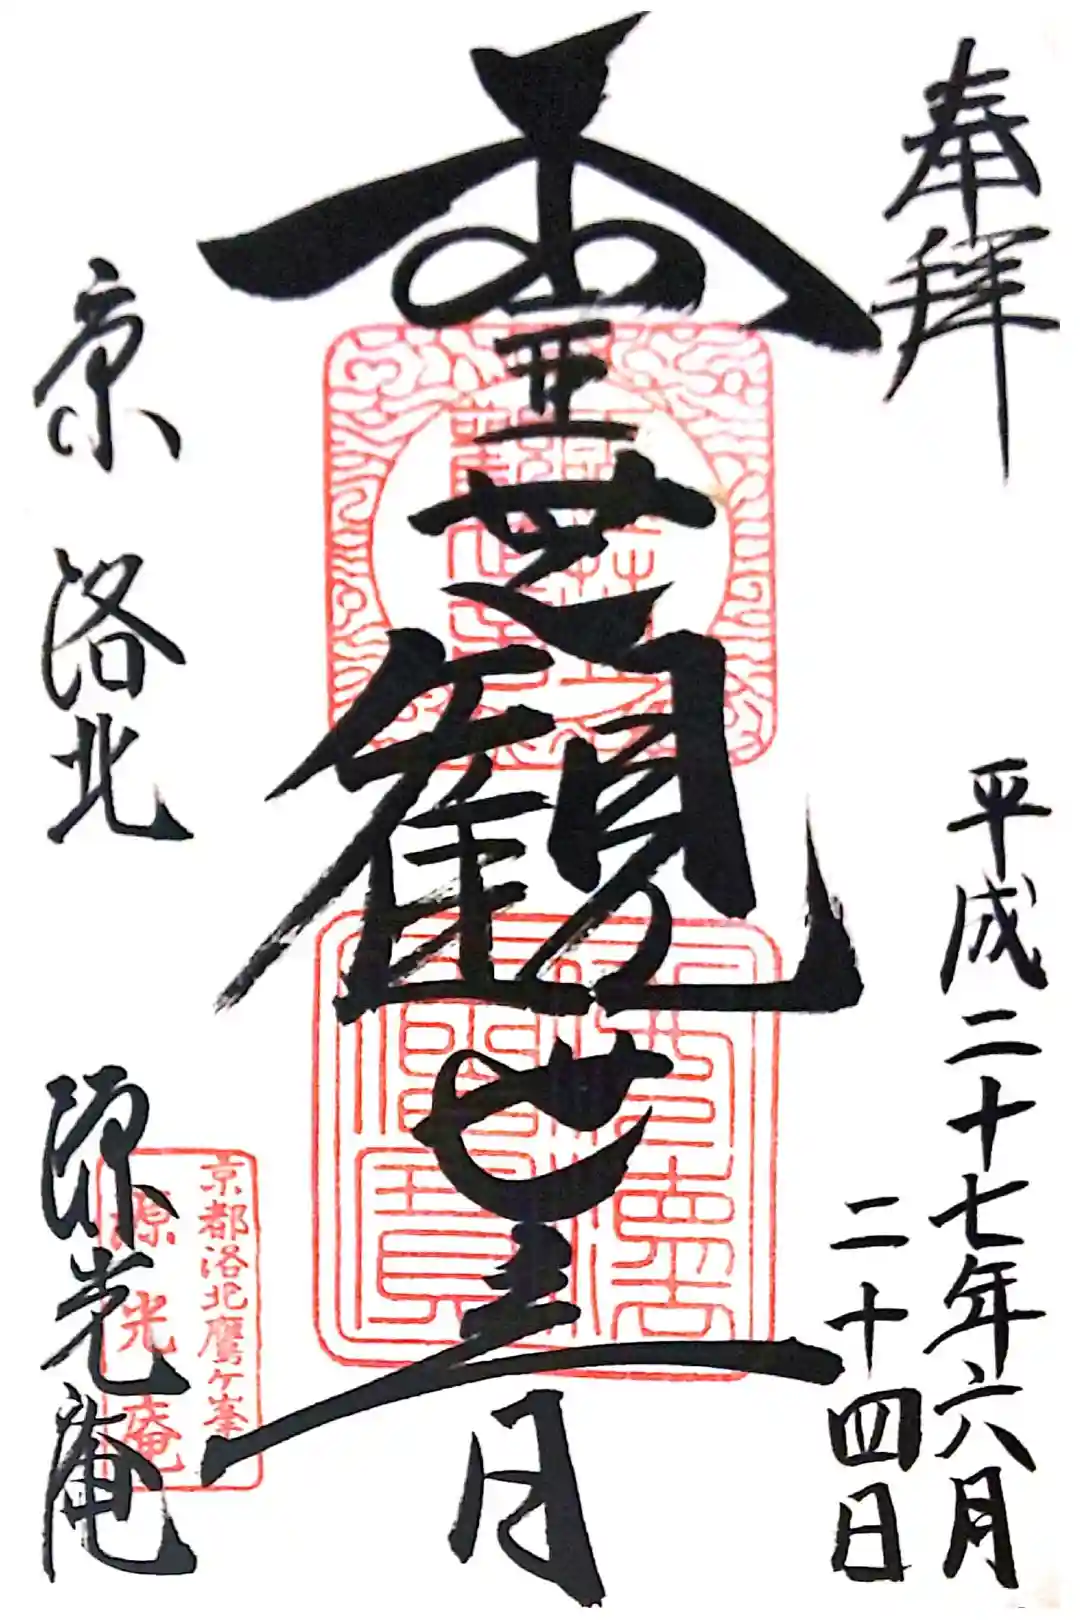 奉拝
平成二十七年六月
二十四日
霊芝観世音
京 洛北
源光庵
京都洛北鷹ケ峯
源光庵